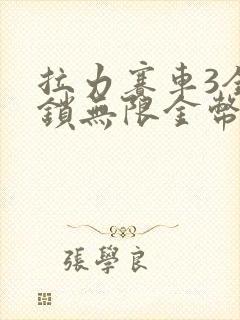 拉力赛車3全
鎖無限金幣
張學良